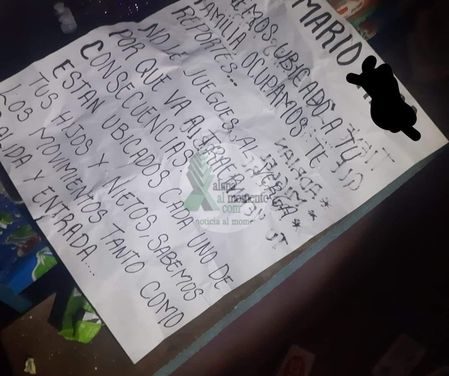 MARIO
TEMOS UBICADO A TU
FAMILIA OCUPAMOS TE
REPORTES...
NO LE JUEGUES AL VERGA
POR QUE VA A TRAER
CONSECUENCIAS
ESTAN UBICADOS CADA UNO DE
TUS HIJOS Y NIETOS, SABEMOS
LOS MOVIMIENTOS TANTO COMO
SALIDA Y ENTRADA...
al momento
.com
noticia al mome